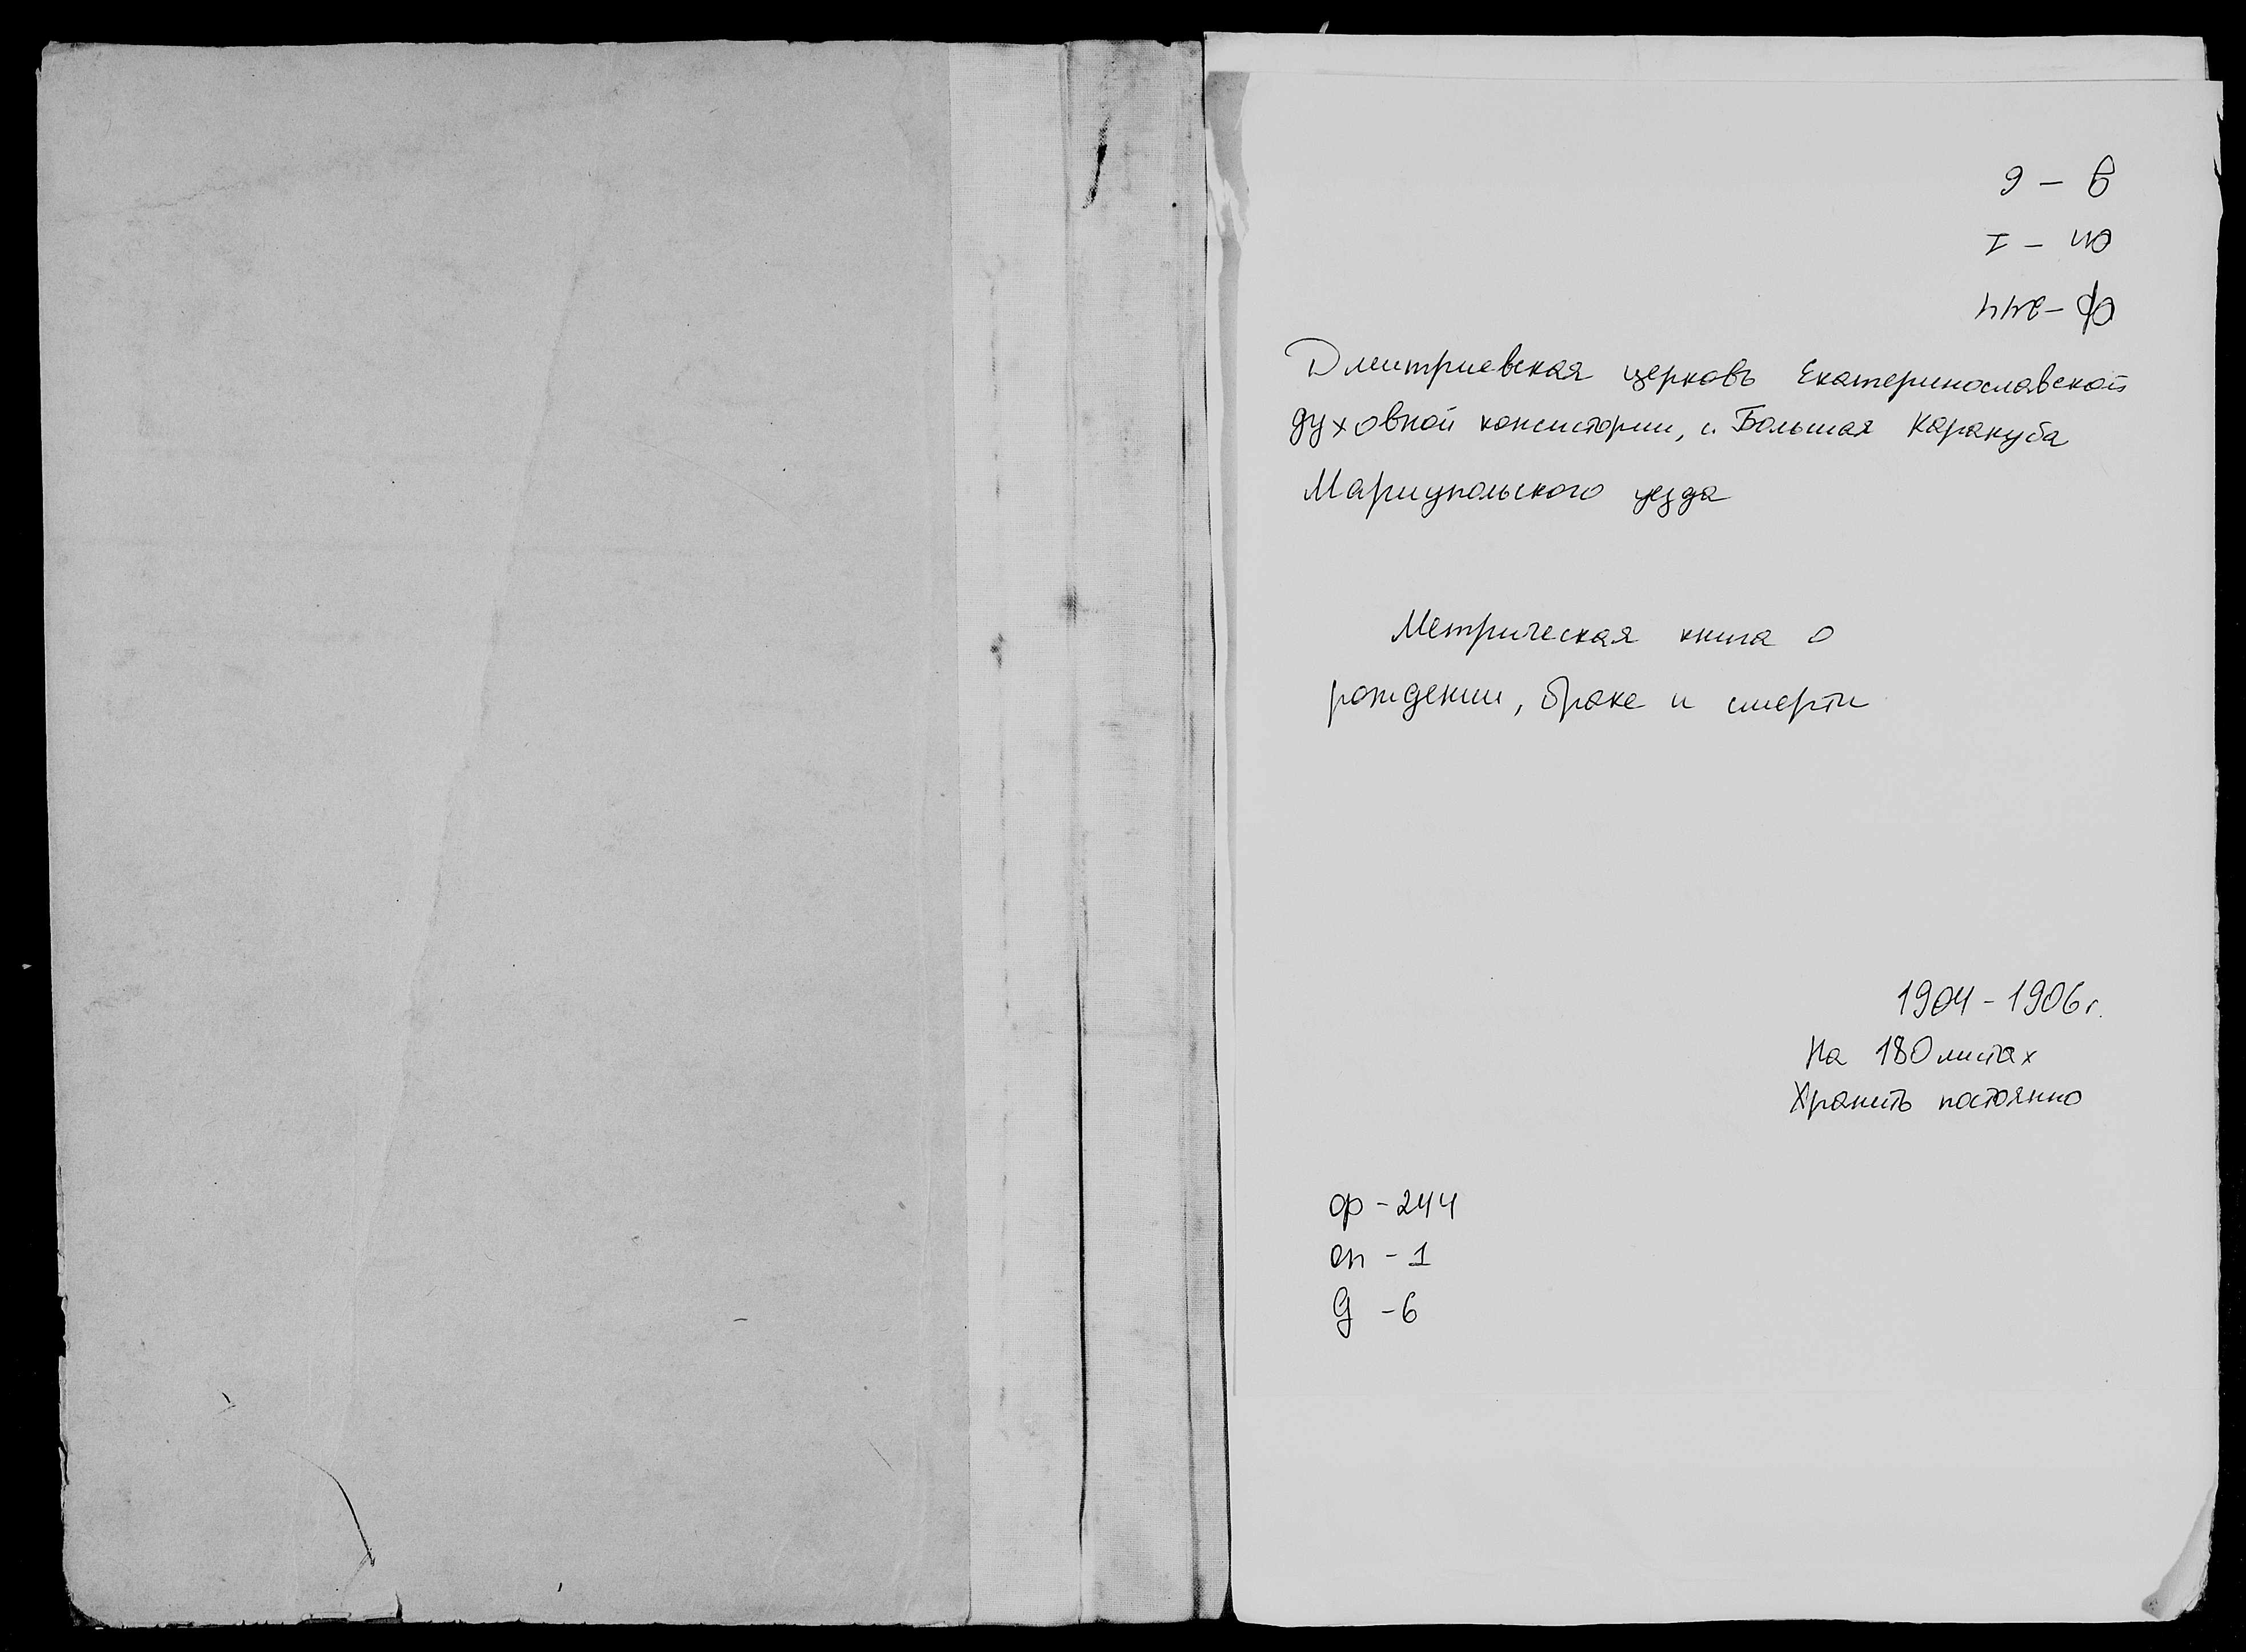 д - 6
оп - 1
ф - 244
Дмитриевская церковь Екатеринославской
духовной консистории, с. Большая Каракуба
Мариупольского уезда
Метрическая книга о
рождении, браке и смерти
1904 - 1906 г.
На 180 листах
Хранить постоянно
ф - 244
оп - 1
д - 6